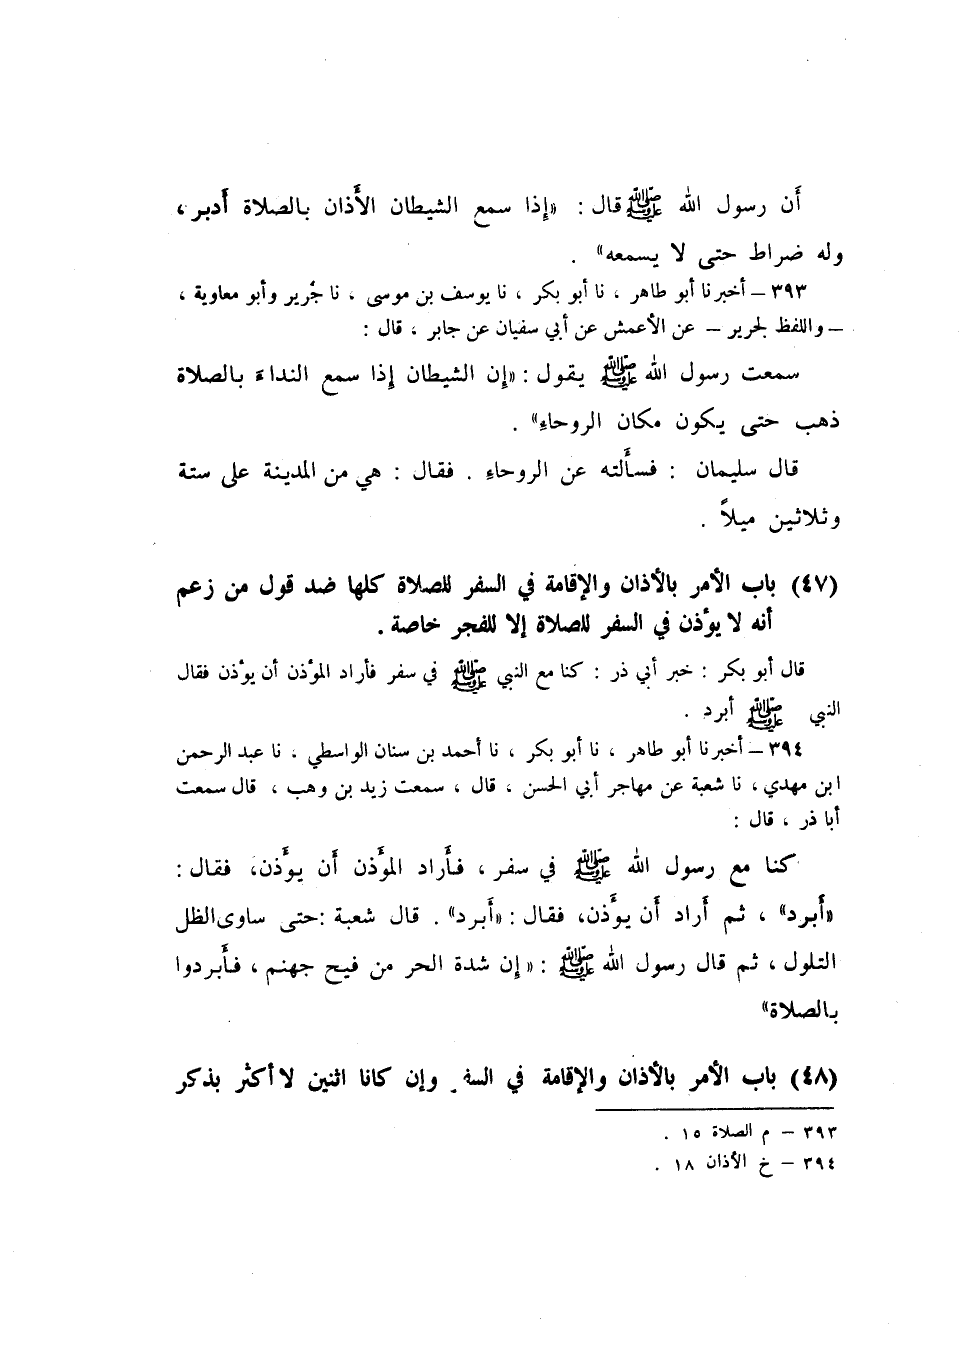 أن رسول الله ﷺ قال : «إذا سمع الشيطان الأذان بالصلاة أدبر ،
وله ضراط حتى لا يسمعه» .
٣٩٣ – أخبرنا أبو طاهر ، نا أبو بكر ، نا يوسف بن موسى ، نا جُرير وأبو معاوية ،
– واللفظ لجرير – عن الأعمش عن أبي سفيان عن جابر ، قال :
سمعت رسول الله ﷺ يقول : «إن الشيطان إذا سمع النداء بالصلاة
ذهب حتى يكون مكان الروحاء» .
قال سليمان : فسألته عن الروحاء . فقال : هي من المدينة على ستة
وثلاثين ميلاً .
(٤٧) باب الأمر بالأذان والإقامة في السفر للصلاة كلها ضد قول من زعم
أنه لا يؤذن في السفر للصلاة إلا للفجر خاصة .
قال أبو بكر : خبر أبي ذر : كنا مع النبي ﷺ في سفر فأراد المؤذن أن يؤذن فقال
النبي ﷺ أبرد .
٣٩٤ – أخبرنا أبو طاهر ، نا أبو بكر ، نا أحمد بن سنان الواسطي ، نا عبد الرحمن
ابن مهدي ، نا شعبة عن مهاجر أبي الحسن ، قال ، سمعت زيد بن وهب ، قال سمعت
أبا ذر ، قال :
كنا مع رسول الله ﷺ في سفر ، فأراد المؤذن أن يؤذن، فقال :
«أبرد» ، ثم أراد أن يؤذن، فقال : «أبرد» . قال شعبة : حتى ساوى الظل
التلول ، ثم قال رسول الله ﷺ : «إن شدة الحر من فيح جهنم ، فأبردوا
بالصلاة»
(٤٨) باب الأمر بالأذان والإقامة في السفر وإن كانا اثنين لا أكثر بذكر
٣٩٣ – م الصلاة ١٥ .
٣٩٤ – خ الأذان ١٨ .